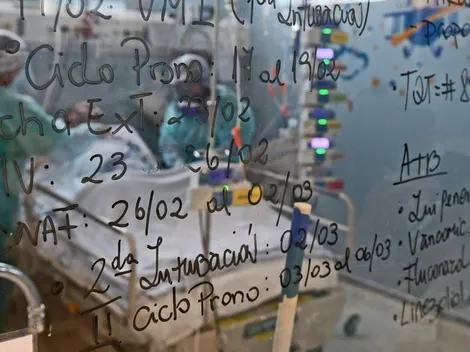 11/02: VMI (1era Intubación)
Ciclo Prono: 17 al 19/02
cha Ext: 23/02
23 26/02
NAF: 26/02 al 02/03
2da Intubación: 02/03
II Ciclo Prono: 03/03 al 06/03
Propo
TQT=#8
ATB
• Imipenem
• Vancomic
• Fluconazol
• Linezolid